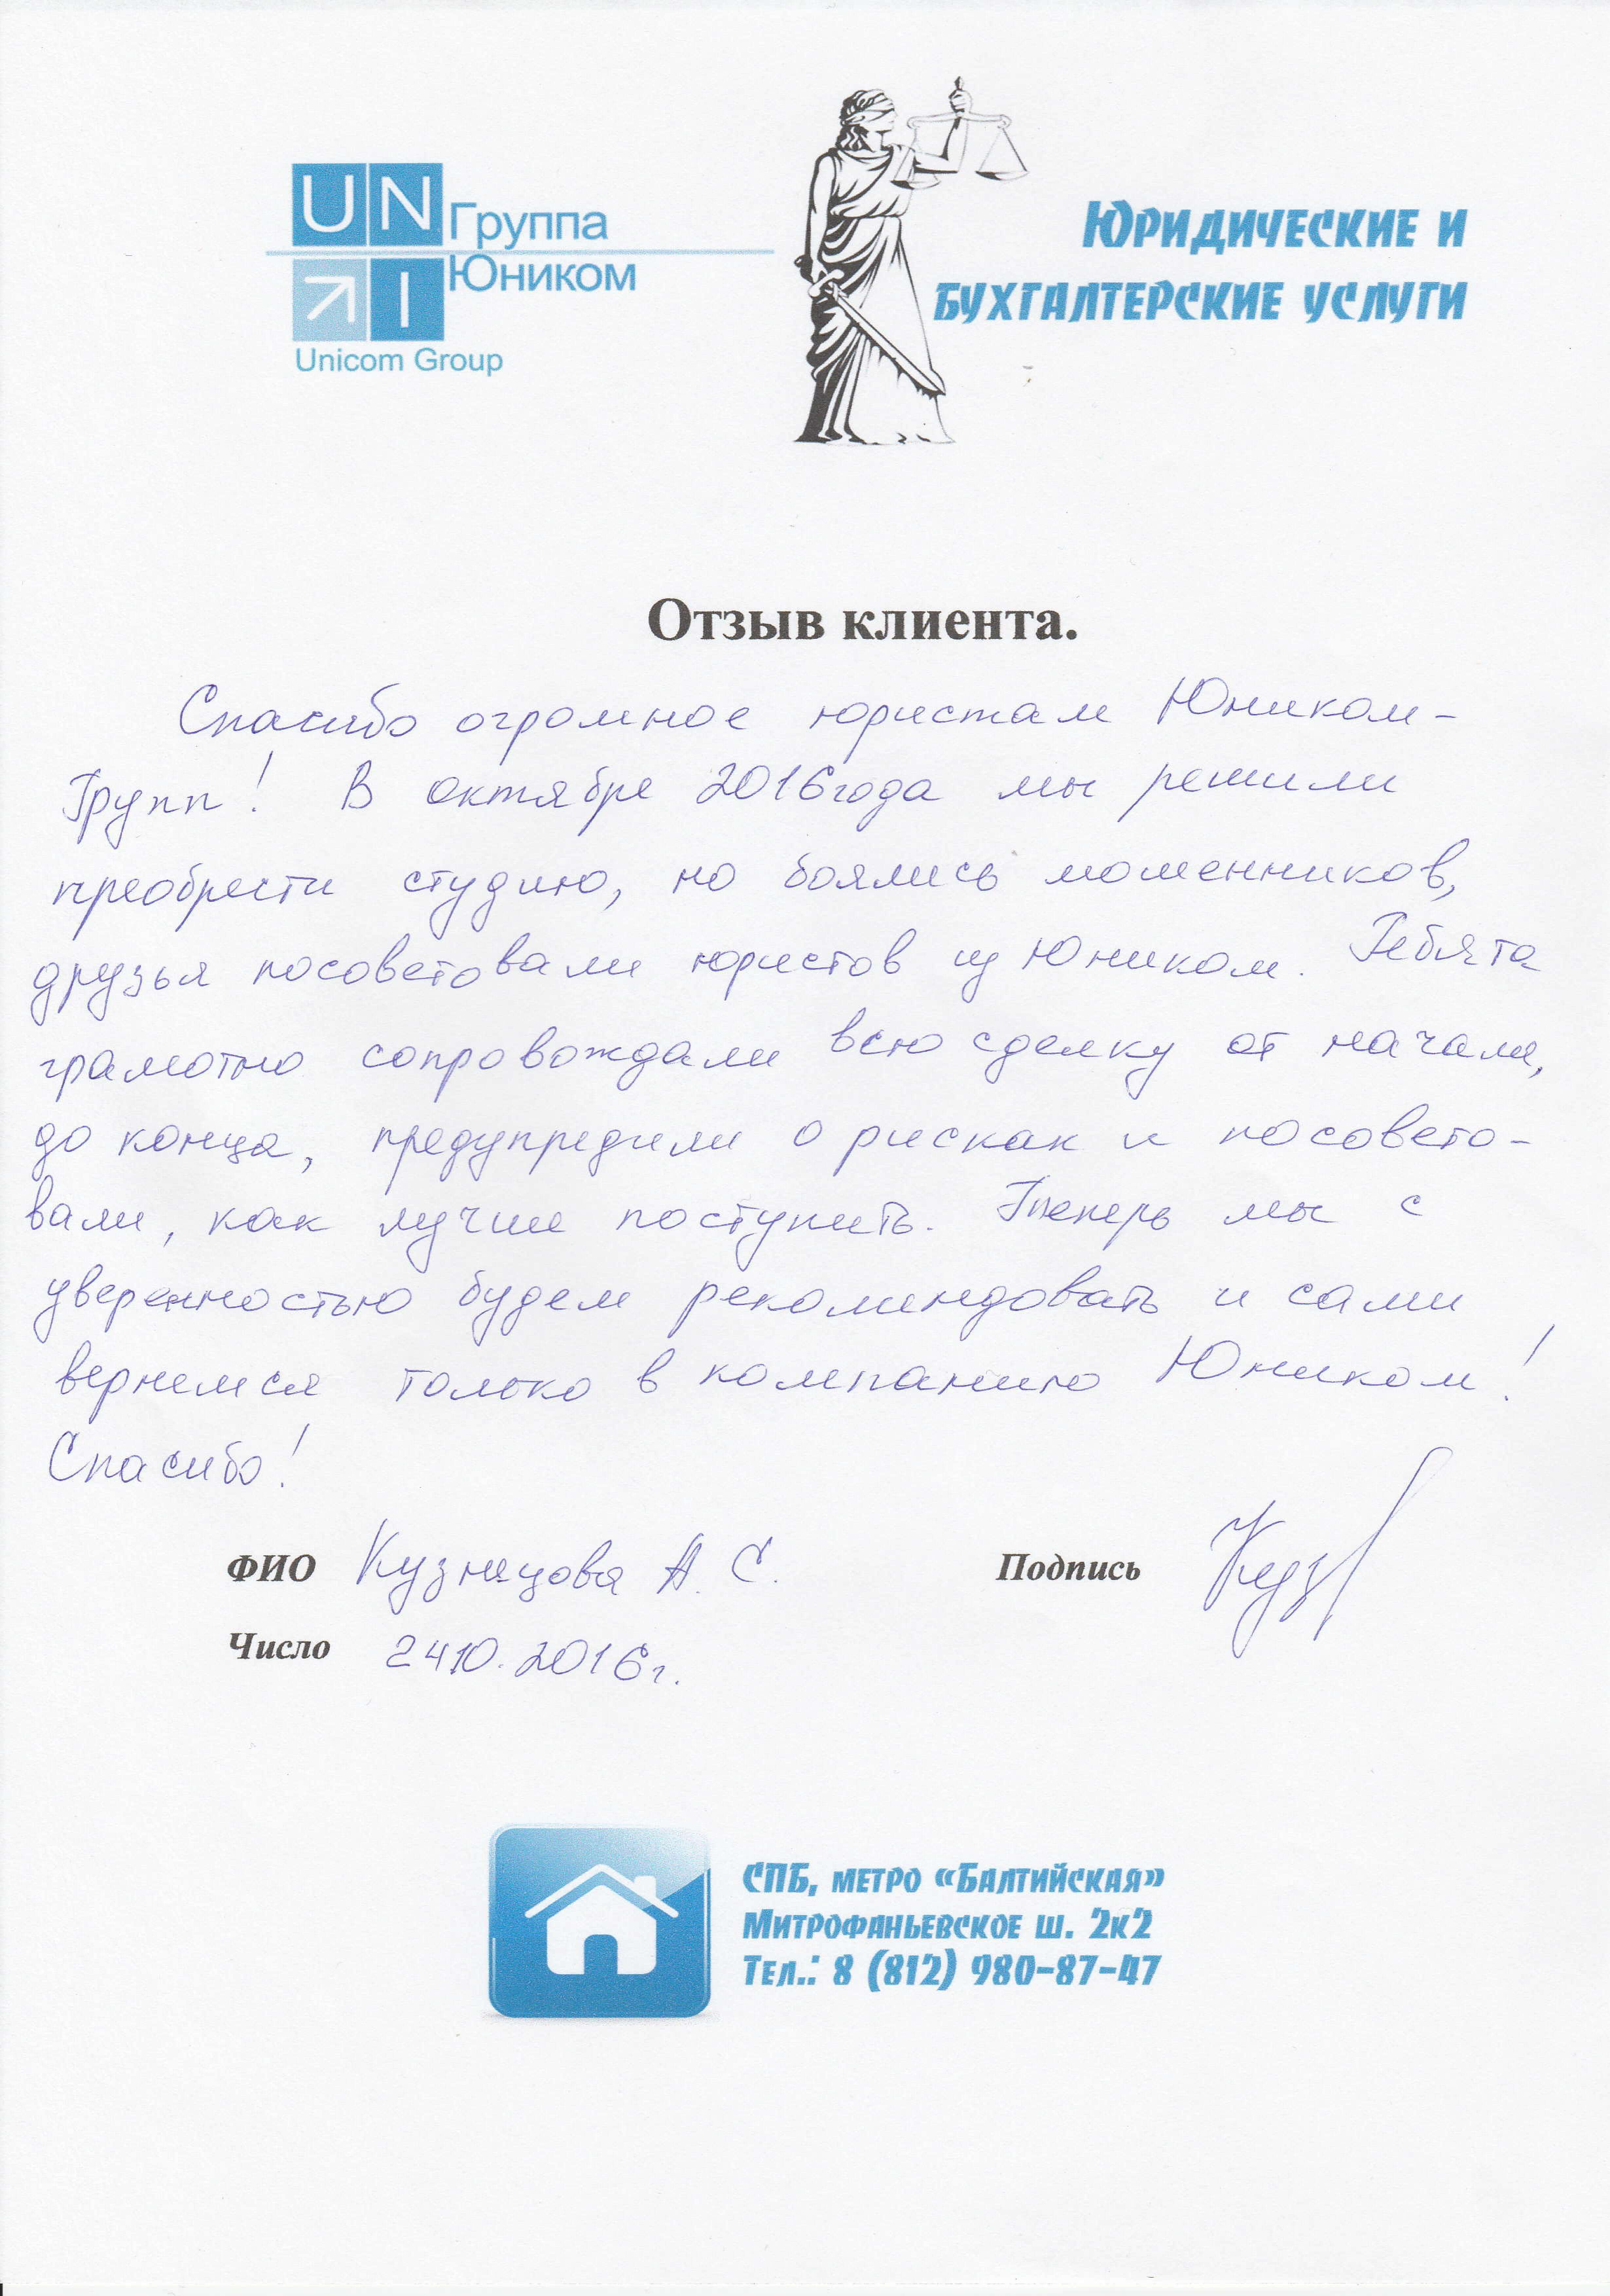 UN Группа
Юником
I
Unicom Group
Юридические и
бухгалтерские услуги
Отзыв клиента.
Спасибо огромное юристам Юником-
Групп! В октябре 2016года мы решили
преобрести студию, но боялись мошенников,
друзья посоветовали юристов из Юником. Ребята
грамотно сопровождали всю сделку от начала,
до конца, предупредили о рисках и посовето-
вали, как лучше поступить. Теперь мы с
уверенностью будем рекомендовать и сами
вернемся только в компанию Юником!
Спасибо!
ФИО Кузнецова А. С. Подпись Куз
Число 24.10.2016г.
СПБ, метро «Балтийская»
Митрофаньевское ш. 2к2
Тел.: 8 (812) 980-87-47